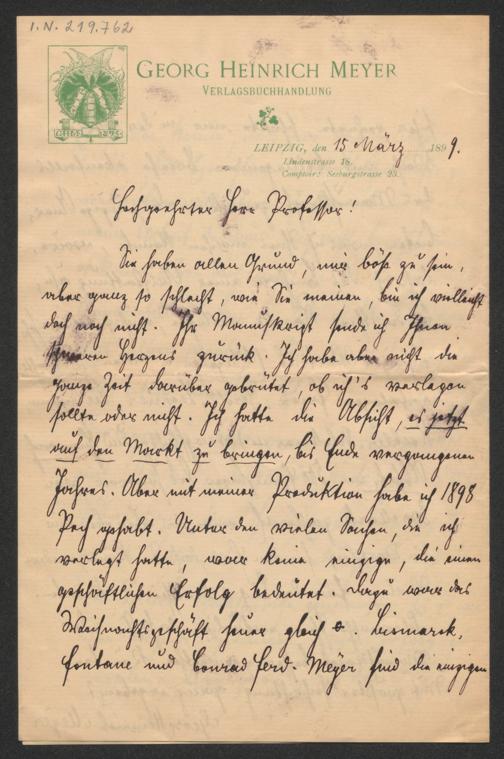 I.N. 219.762
GEORG HEINRICH MEYER
VERLAGSBUCHHANDLUNG
LEIPZIG, den 15 März 1899.
Lindenstrasse 18.
Comptoir: Seeburgstrasse 23.
Hochgeehrter Herr Professor!
Sie haben allen Grund, mir böse zu sein,
aber ganz so schlecht, wie Sie meinen, bin ich vielleicht
doch noch nicht. Ihr Manuskript sende ich Ihnen
schweren Herzens zurück. Ich habe aber nicht die
ganze Zeit darüber gebrütet, ob ich's verlegen
sollte oder nicht. Ich hatte die Absicht, es jetzt
auf den Markt zu bringen, bis Ende vergangenen
Jahres. Aber mit meiner Produktion habe ich 1898
Pech gehabt. Unter den vielen Sachen, die ich
verlegt hatte, war keine einzige, die einen
geschäftlichen Erfolg bedeutet. Dazu war das
Weihnachtsgeschäft heuer gleich 0. Bismarck,
Fontane und Conrad Ferd. Meyer sind die einzigen